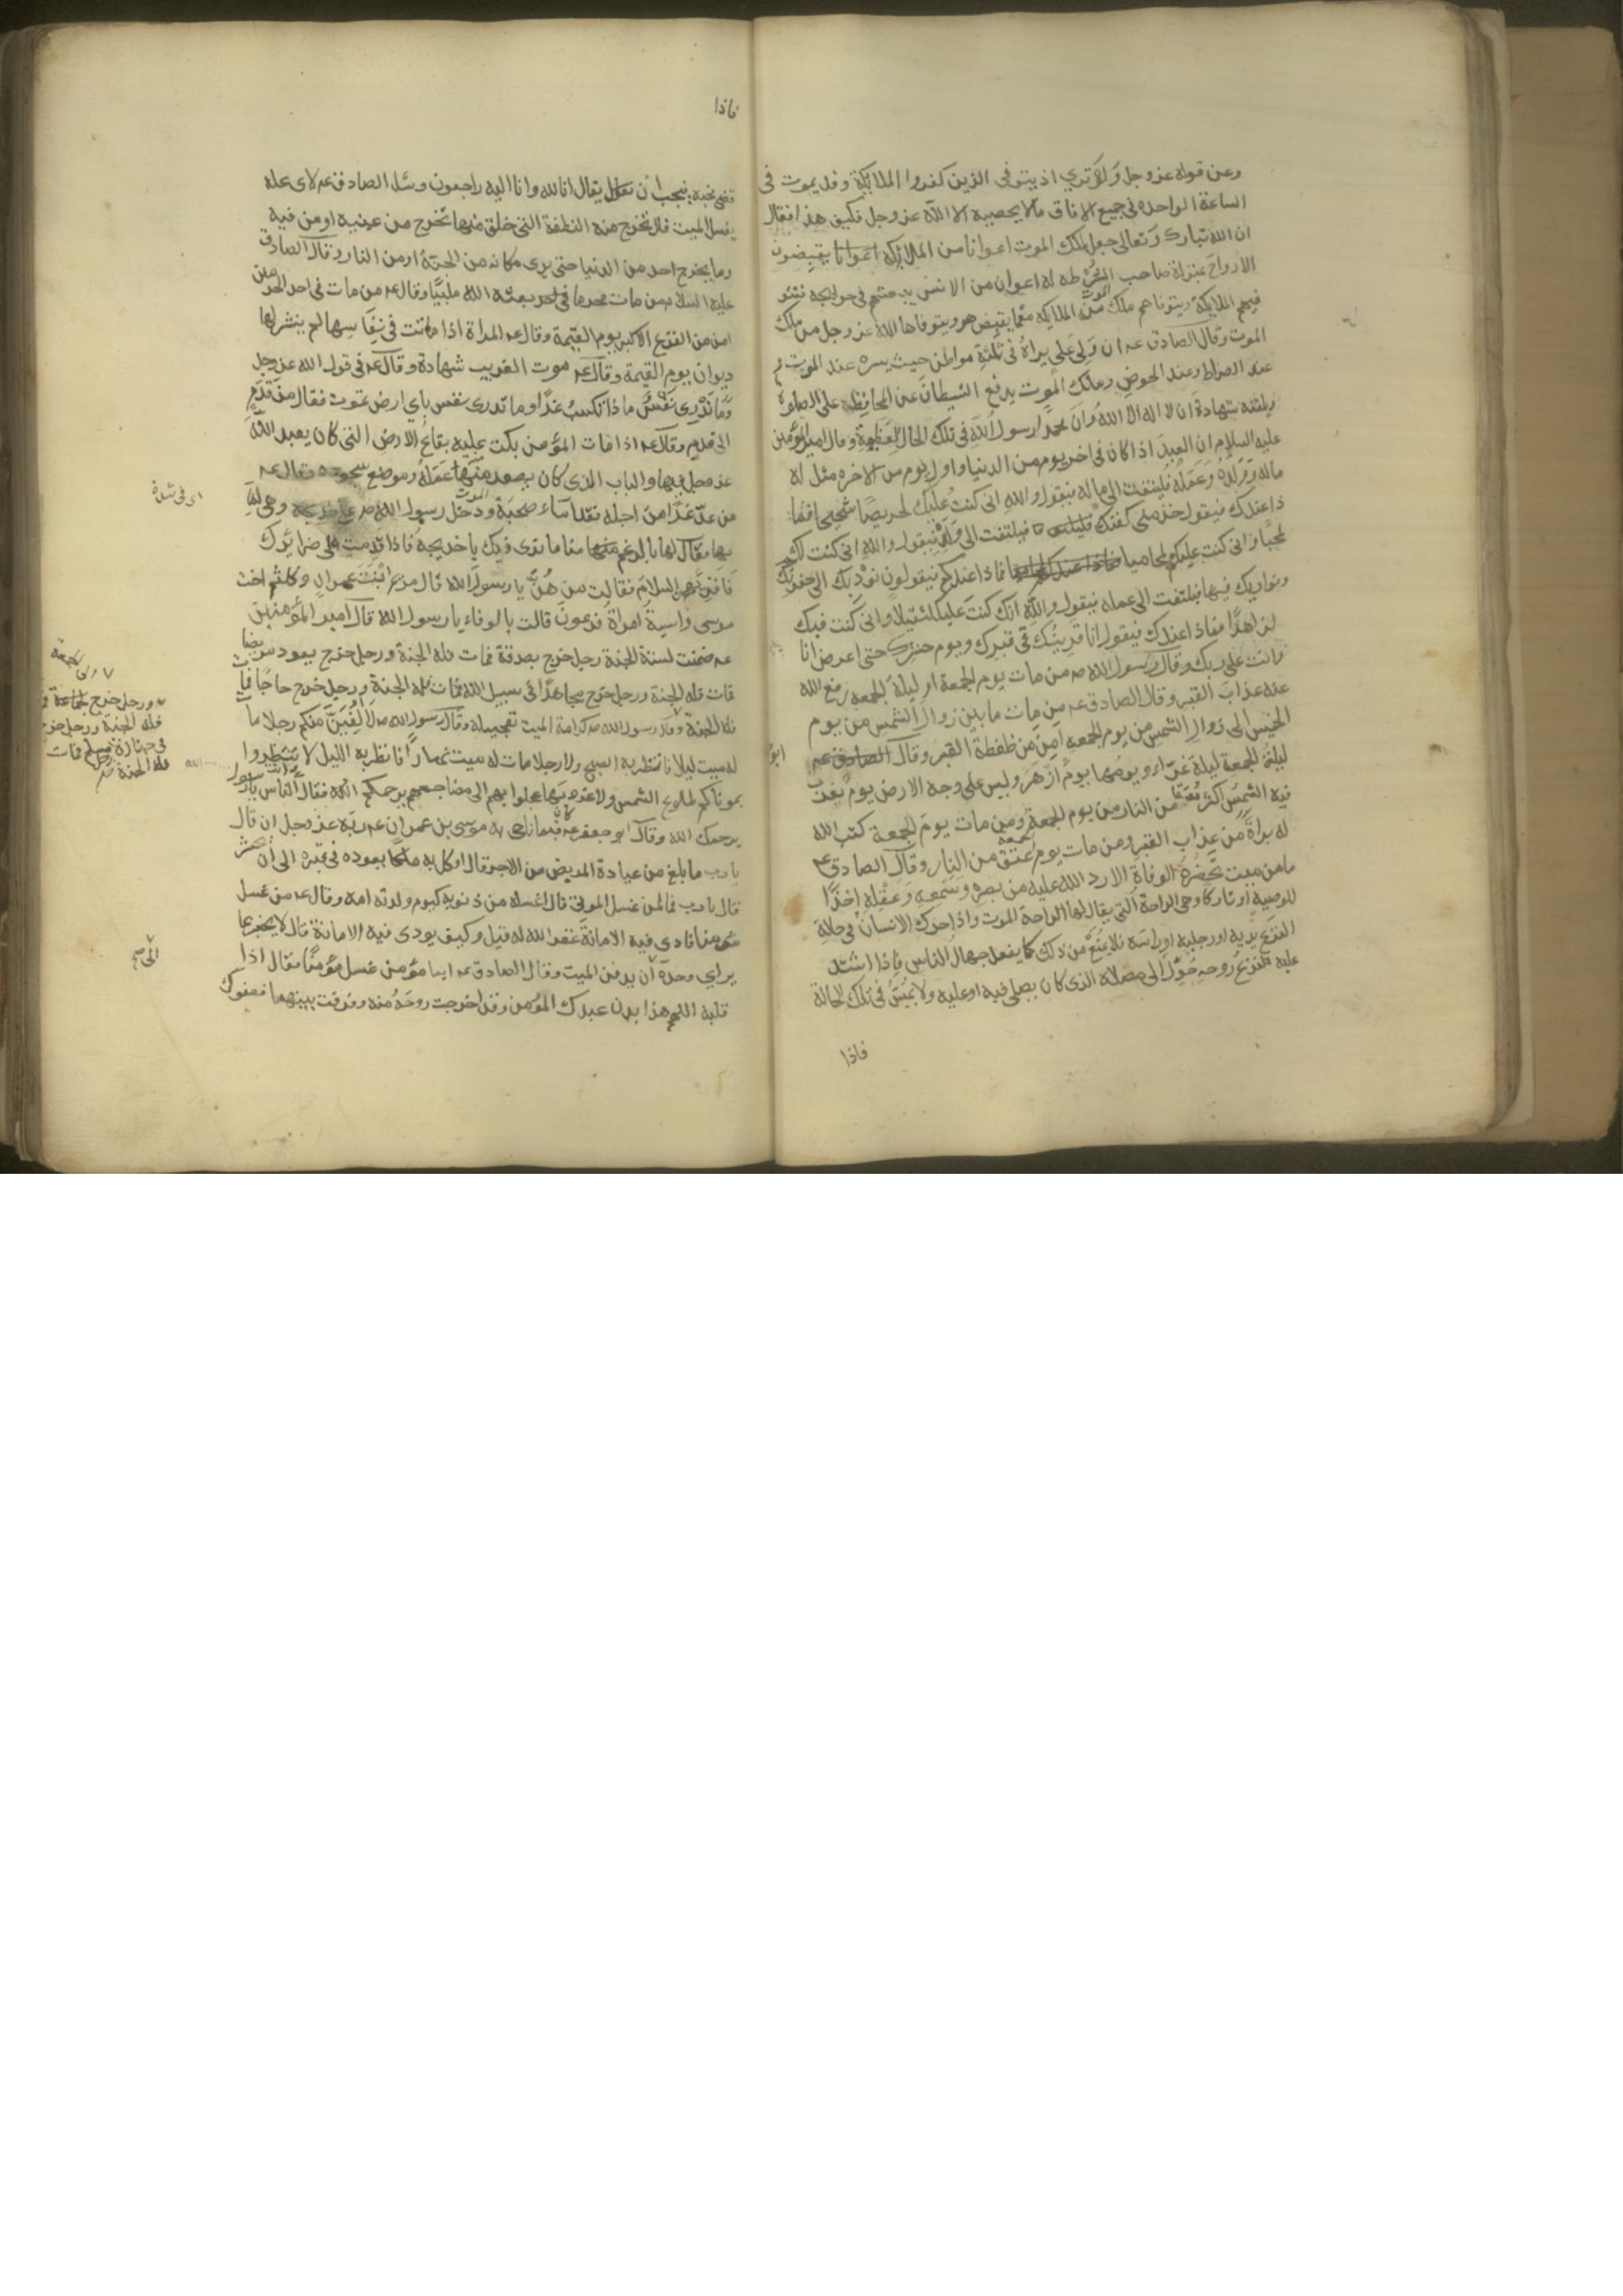 وعن قوله عز وجل ولو ترى اذ يتوفى الذين كفروا الملائكة وقد يموت فى
الساعة الواحدة فى جميع الافاق مالا يحصيه الا الله عز وجل فكيف هذا فقال
ان الله تبارك وتعالى جعل لملك الموت اعوانا من الملائكة يقبضون
الارواح بمنزلة صاحب الشرطه له اعوان من الانس يبعثهم فى حوايجه فتتو
فيهم الملايكة ويتوفاهم ملك الموت من الملايكه مع ما يقبض هو ويتوفاها الله عز وجل من ملك
الموت وقال الصادق عه ان ولى على يراه فى ثلثة مواطن حيث يسره عند الموت و
عند الصراط وعند الحوض وملك الموت يدفع الشيطان عن المحافظه على الصلوة
ويلقنه شهادة ان لا اله الا الله وان محمدا رسول الله فى تلك الحال العظيمة وقال امير المؤمنين
عليه السلام ان العبد اذا كان فى اخر يوم من الدنيا واول يوم من الاخره مثل له
ماله وولده وعمله فيلتفت الى ماله فيقول والله انى كنت عليك لحريصا شحيحا فما
ذا عندك فيقول خذ منى كفنك فيلتفت الى ولده فيقول والله انى كنت لكم
لمحبا وانى كنت عليكم لمحاميا فماذا عندكم فيقولون نؤديك الى حفرتك
ونواريك فيها فيلتفت الى عمله فيقول والله انك كنت على لثقيلا وانى كنت فيك
لزاهدا فماذا عندك فيقول انا قرينك فى قبرك ويوم حشرك حتى اعرض انا
وانت على ربك وقال رسول الله صه من مات يوم الجمعة او ليلة الجمعه رفع الله
عنه عذاب القبر وقال الصادق عه من مات ما بين زوال الشمس من يوم
الخميس الى زوال الشمس من يوم الجمعه امن من ضغطة القبر وقال الصادق عه
ابو
ليلة الجمعة ليلة غراء ويومها يوم ازهر وليس على وجه الارض يوم تغرب
فيه الشمس اكثر معتقا من النار من يوم الجمعة ومن مات يوم الجمعة كتب الله
له براة من عذاب القبر ومن مات يوم الجمعه عتق من النار وقال الصادق ع
ما من ميت تحضره الوفاة الا رد الله عليه من بصره وسمعه وعقله اخذا
للوصية او تاركا وهى الراحة التى يقال لها الراحة الموت واذا حرك الانسان فى حالة
النزع يديه او رجليه او راسه فلا يمنع من ذلك كما يفعل جهال الناس فاذا اشتد
عليه نزع روحه حول الى مصلاه الذى كان يصلى فيه او عليه ولا يمس فى تلك الحالة
فاذا
فاذا
قضى نحبه فيجب ان يقال انا لله وانا اليه راجعون وسئل الصادق عه لاى عله
يغسل الميت قال تخرج منه النطفة التى خلق منها تخرج من عينيه او من فيه
وما يخرج احد من الدنيا حتى يرى مكانه من الجنة او من النار وقال الصادق
عليه السلام من مات محرما بعثه الله ملبيا وقال عه من مات فى احد الحرمين
امن من الفزع الاكبر يوم القيمة وقال عه المراة اذا ماتت فى نفاسها لم ينشر لها
ديوان يوم القيمة وقال عه موت الغريب شهادة وقال عه فى قول الله عز وجل
وما تدرى نفس ماذا تكسب غدا وما تدرى نفس باي ارض تموت فقال من قدم
الى قدم وقال عه اذا مات المؤمن بكت عليه بقاع الارض التى كان يعبد الله
عز وجل فيها والباب الذى كان يصعد منها عمله وموضع سجوده وقال عه
من عد غدا من اجله فقد اساء صحبة الموت ودخل رسول الله صه على خديجه وهى لما
اى فى شدة
بها فقال لها بالرغم منا ما نرى فيك يا خديجه فاذا قدمت على ضرايرك
فاقريهن السلام فقالت من هن يا رسول الله قال مريم ابنت عمران وكلثم اخت
موسى واسية امراة فرعون قالت بالرفاء يا رسول الله وقال امير المؤمنين
عه ضمنت لستة الجنة رجل خرج بصدقة فمات فله الجنة ورجل خرج يعود مريضا
فمات فله الجنة ورجل خرج مجاهدا فى سبيل الله فمات فله الجنة ورجل خرج حاجا فمات
فله الجنة وقال رسول الله صه كرامة الميت تعجيله وقال رسول الله صه لا الفين منكم رجلا مات
ورجل خرج الى الجمعة
فله الجنة ورجل خرج
فى جنازة رجل مسلم فمات
فله الجنة
له ميت ليلا فانتظر به الصبح ولا رجلا مات له ميت نهارا فانتظر به الليل لا تنتظروا
بموتاكم طلوع الشمس ولا غروبها عجلوا بهم الى مضاجعهم يرحمكم الله فقال الناس وانت يا رسول
الله
يرحمك الله وقال ابو جعفر عه فيما ناجى به موسى بن عمران عه ربه عز وجل ان قال
يا رب ما بلغ من عيادة المريض من الاجر قال اوكل به ملكا يعوده فى قبره الى ان يحشر
قال يا رب فما لمن غسل الموتى قال اغسله من ذنوبه كيوم ولدته امه وقال عه من غسل
مؤمنا فادى فيه الامانة غفر الله له قيل وكيف يودى فيه الامانة قال لا يخبر بما
يراي وحده الى ان يدفن الميت وقال الصادق عه ايما مؤمن غسل مؤمنا فقال اذا
قلبه اللهم هذا بدن عبدك المؤمن وقد اخرجت روحه منه وفرقت بينهما فعفوك